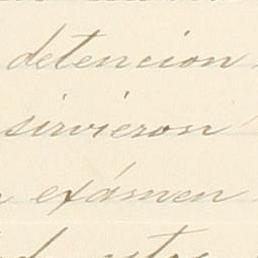 detencion
sirvieron
exámen